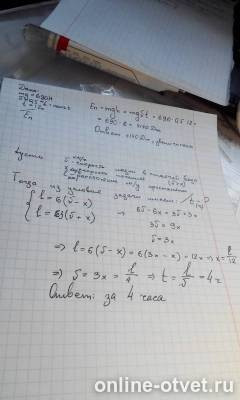 Дано:
mg = 690Н
Eп
Eп = mgh = mgυt = 690 · 0,5 · 12 =
= 690 · 6 = 4140 Дж
Ответ: 4140 Дж, увеличится
Пусть
Тогда из условия задачи имеем:
l = 6(υ - x)
l = 3(υ + x)
⇒ 6υ - 6x = 3υ + 3x
3υ = 9x
υ = 3x
⇒ l = 6(υ - x) = 6(3x - x) = 12x ⇒ x = l/12
⇒ υ = 3x = l/4 ⇒ t = l/υ = 4 ч
Ответ: за 4 часа
online-otvet.ru